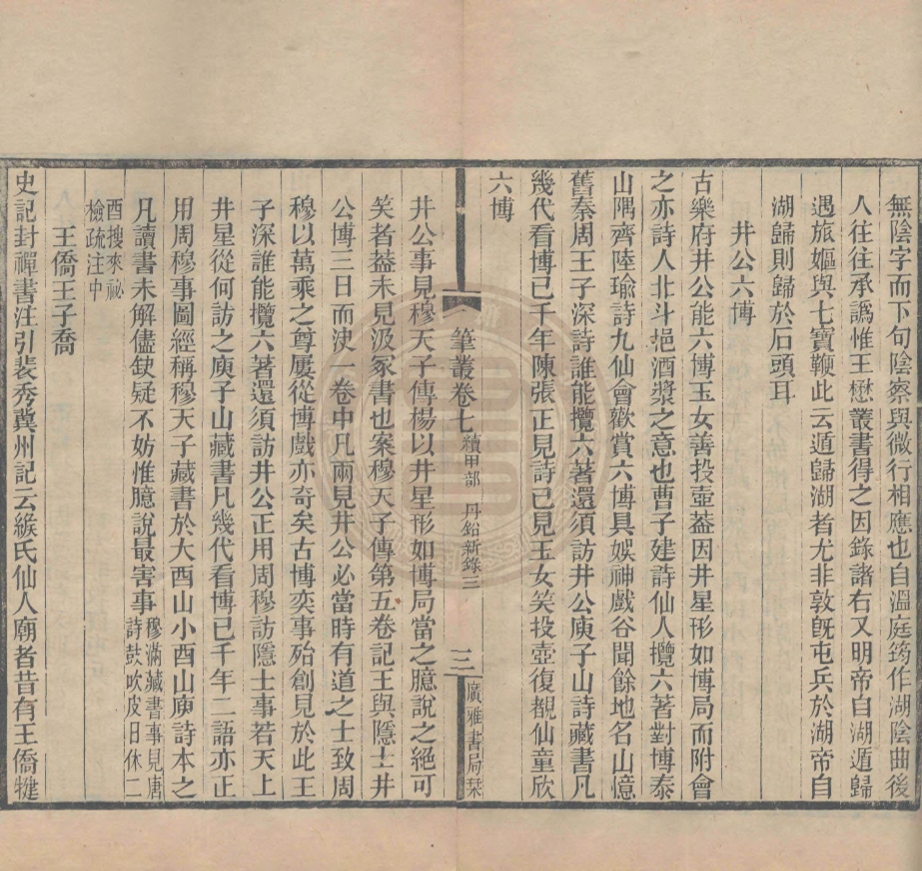 無陰字而下句陰察與微行相應也自溫庭筠作湖陰曲後
人往往承譌惟王懋叢書得之因錄諸右又明帝自湖遁歸
遇旅嫗與七寶鞭此云遁歸湖者尤非敦旣屯兵於湖帝自
湖歸則歸於石頭耳
井公六博
古樂府井公能六博玉女善投壺葢因井星形如博局而附會
之亦詩人北斗挹酒漿之意也曹子建詩仙人攬六著對博泰
山隅齊陸瑜詩九仙會歡賞六博具娛神戲谷聞餘地名山憶
舊秦周王子深詩誰能攬六著還須訪井公庾子山詩藏書凡
幾代看博已千年陳張正見詩已見玉女笑投壺復覩仙童欣
六博
筆叢卷七 續甲部 丹鉛新錄三 三 廣雅書局栞
井公事見穆天子傳楊以井星形如博局當之臆說之絕可
笑者葢未見汲冢書也案穆天子傳第五卷記王與隱士井
公博三日而決一卷中凡兩見井公必當時有道之士致周
穆以萬乘之尊屢從博戲亦奇矣古博奕事殆創見於此王
子深誰能攬六著還須訪井公正用周穆訪隱士事若天上
井星從何訪之庾子山藏書凡幾代看博已千年二語亦正
用周穆事圖經稱穆天子藏書於大酉山小酉山庾詩本之
凡讀書未解儘缺疑不妨惟臆說最害事穆滿藏書事見唐
詩鼓吹皮日休二
酉搜來祕
檢疏注中
王僑王子喬
史記封禪書注引裴秀冀州記云緱氏仙人廟者昔有王僑犍